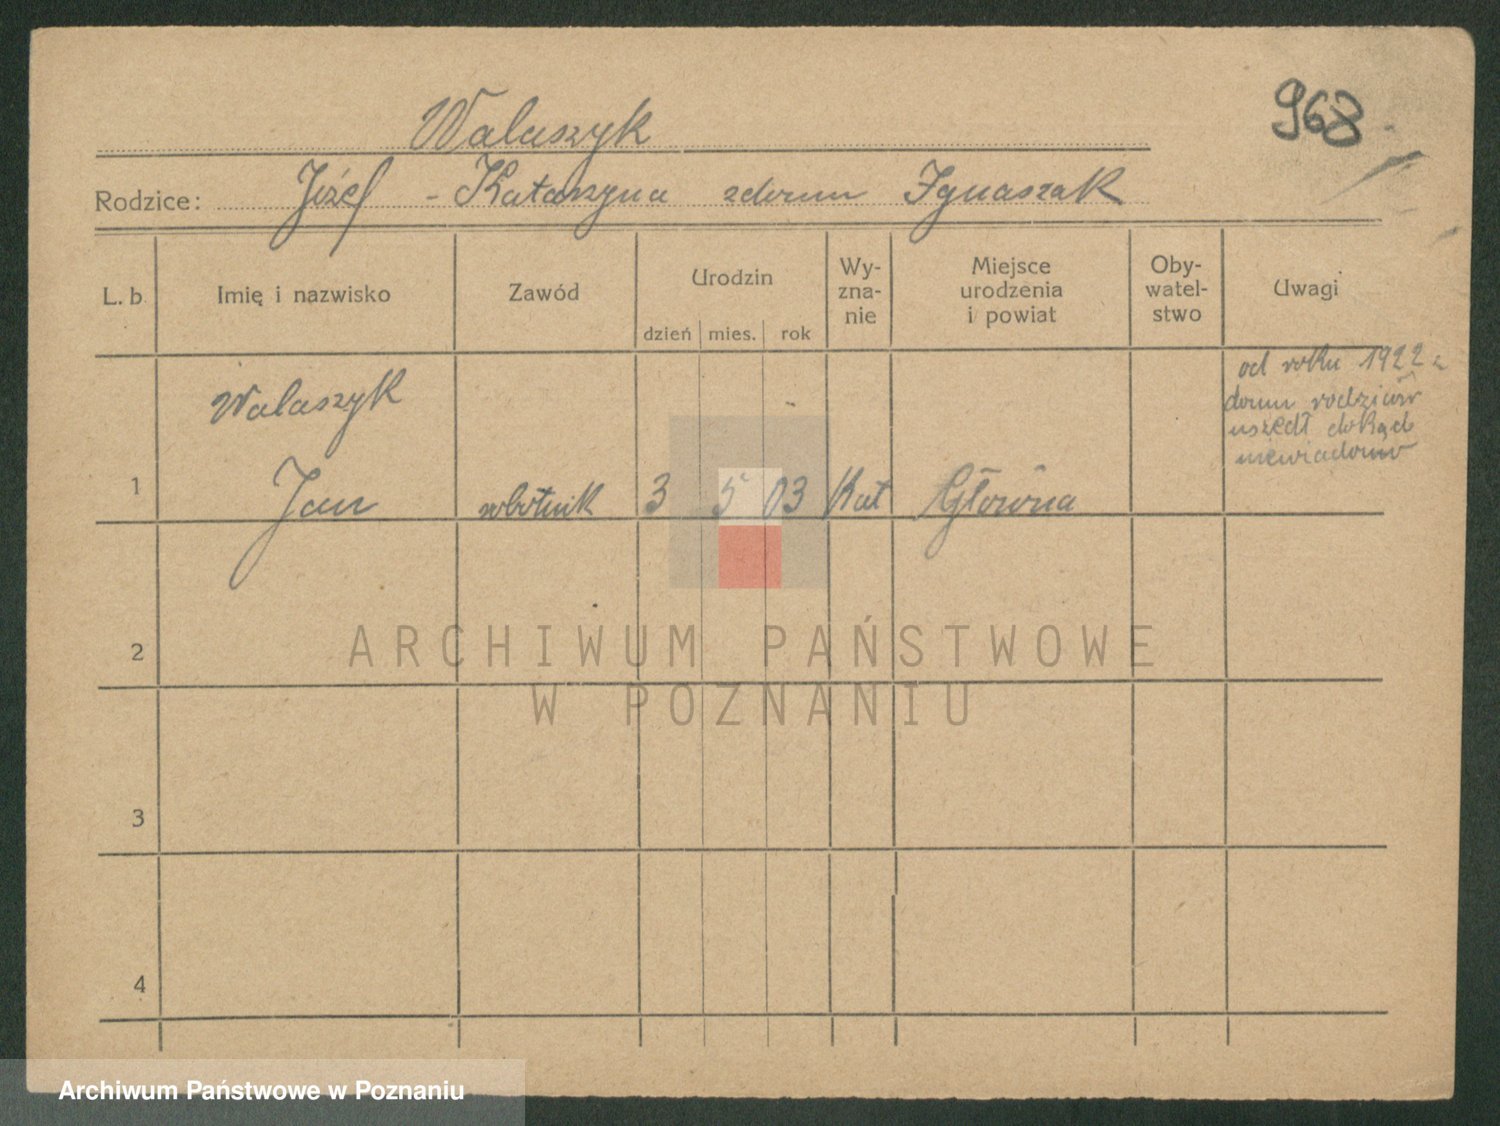 968
Walaszyk
Rodzice: Józef - Katarzyna zdomu Ignaszak
L. b
Imię i nazwisko
Zawód
Urodzin
dzień mies. rok
Wy-
zna-
nie
Miejsce
urodzenia
i powiat
Oby-
watel-
stwo
Uwagi
1
Walaszyk
Jan
robotnik
3 5 03
Kat
Główna
od roku 1922 z
domu rodziców
uszedł dokąd
niewiadomo
2
3
4
ARCHIWUM PAŃSTWOWE
W POZNANIU
Archiwum Państwowe w Poznaniu